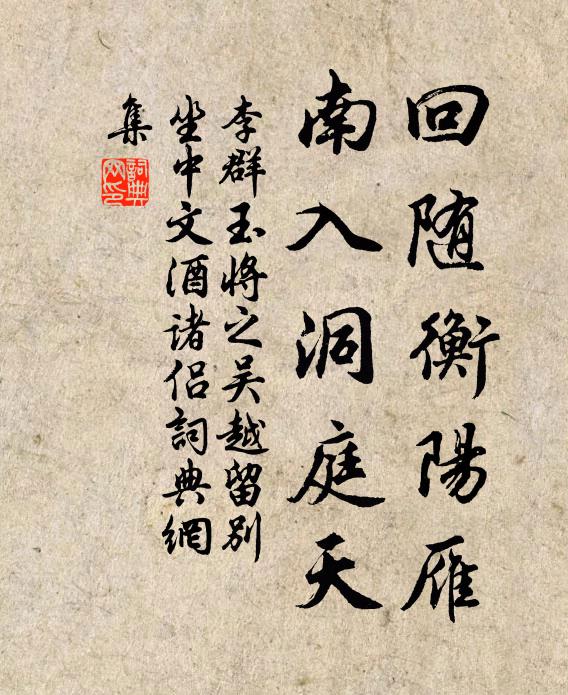 回随衡陽雁
南入洞庭天
李群玉将之吴越留别
坐中文酒诸侣詞典網
集
詞典
网印